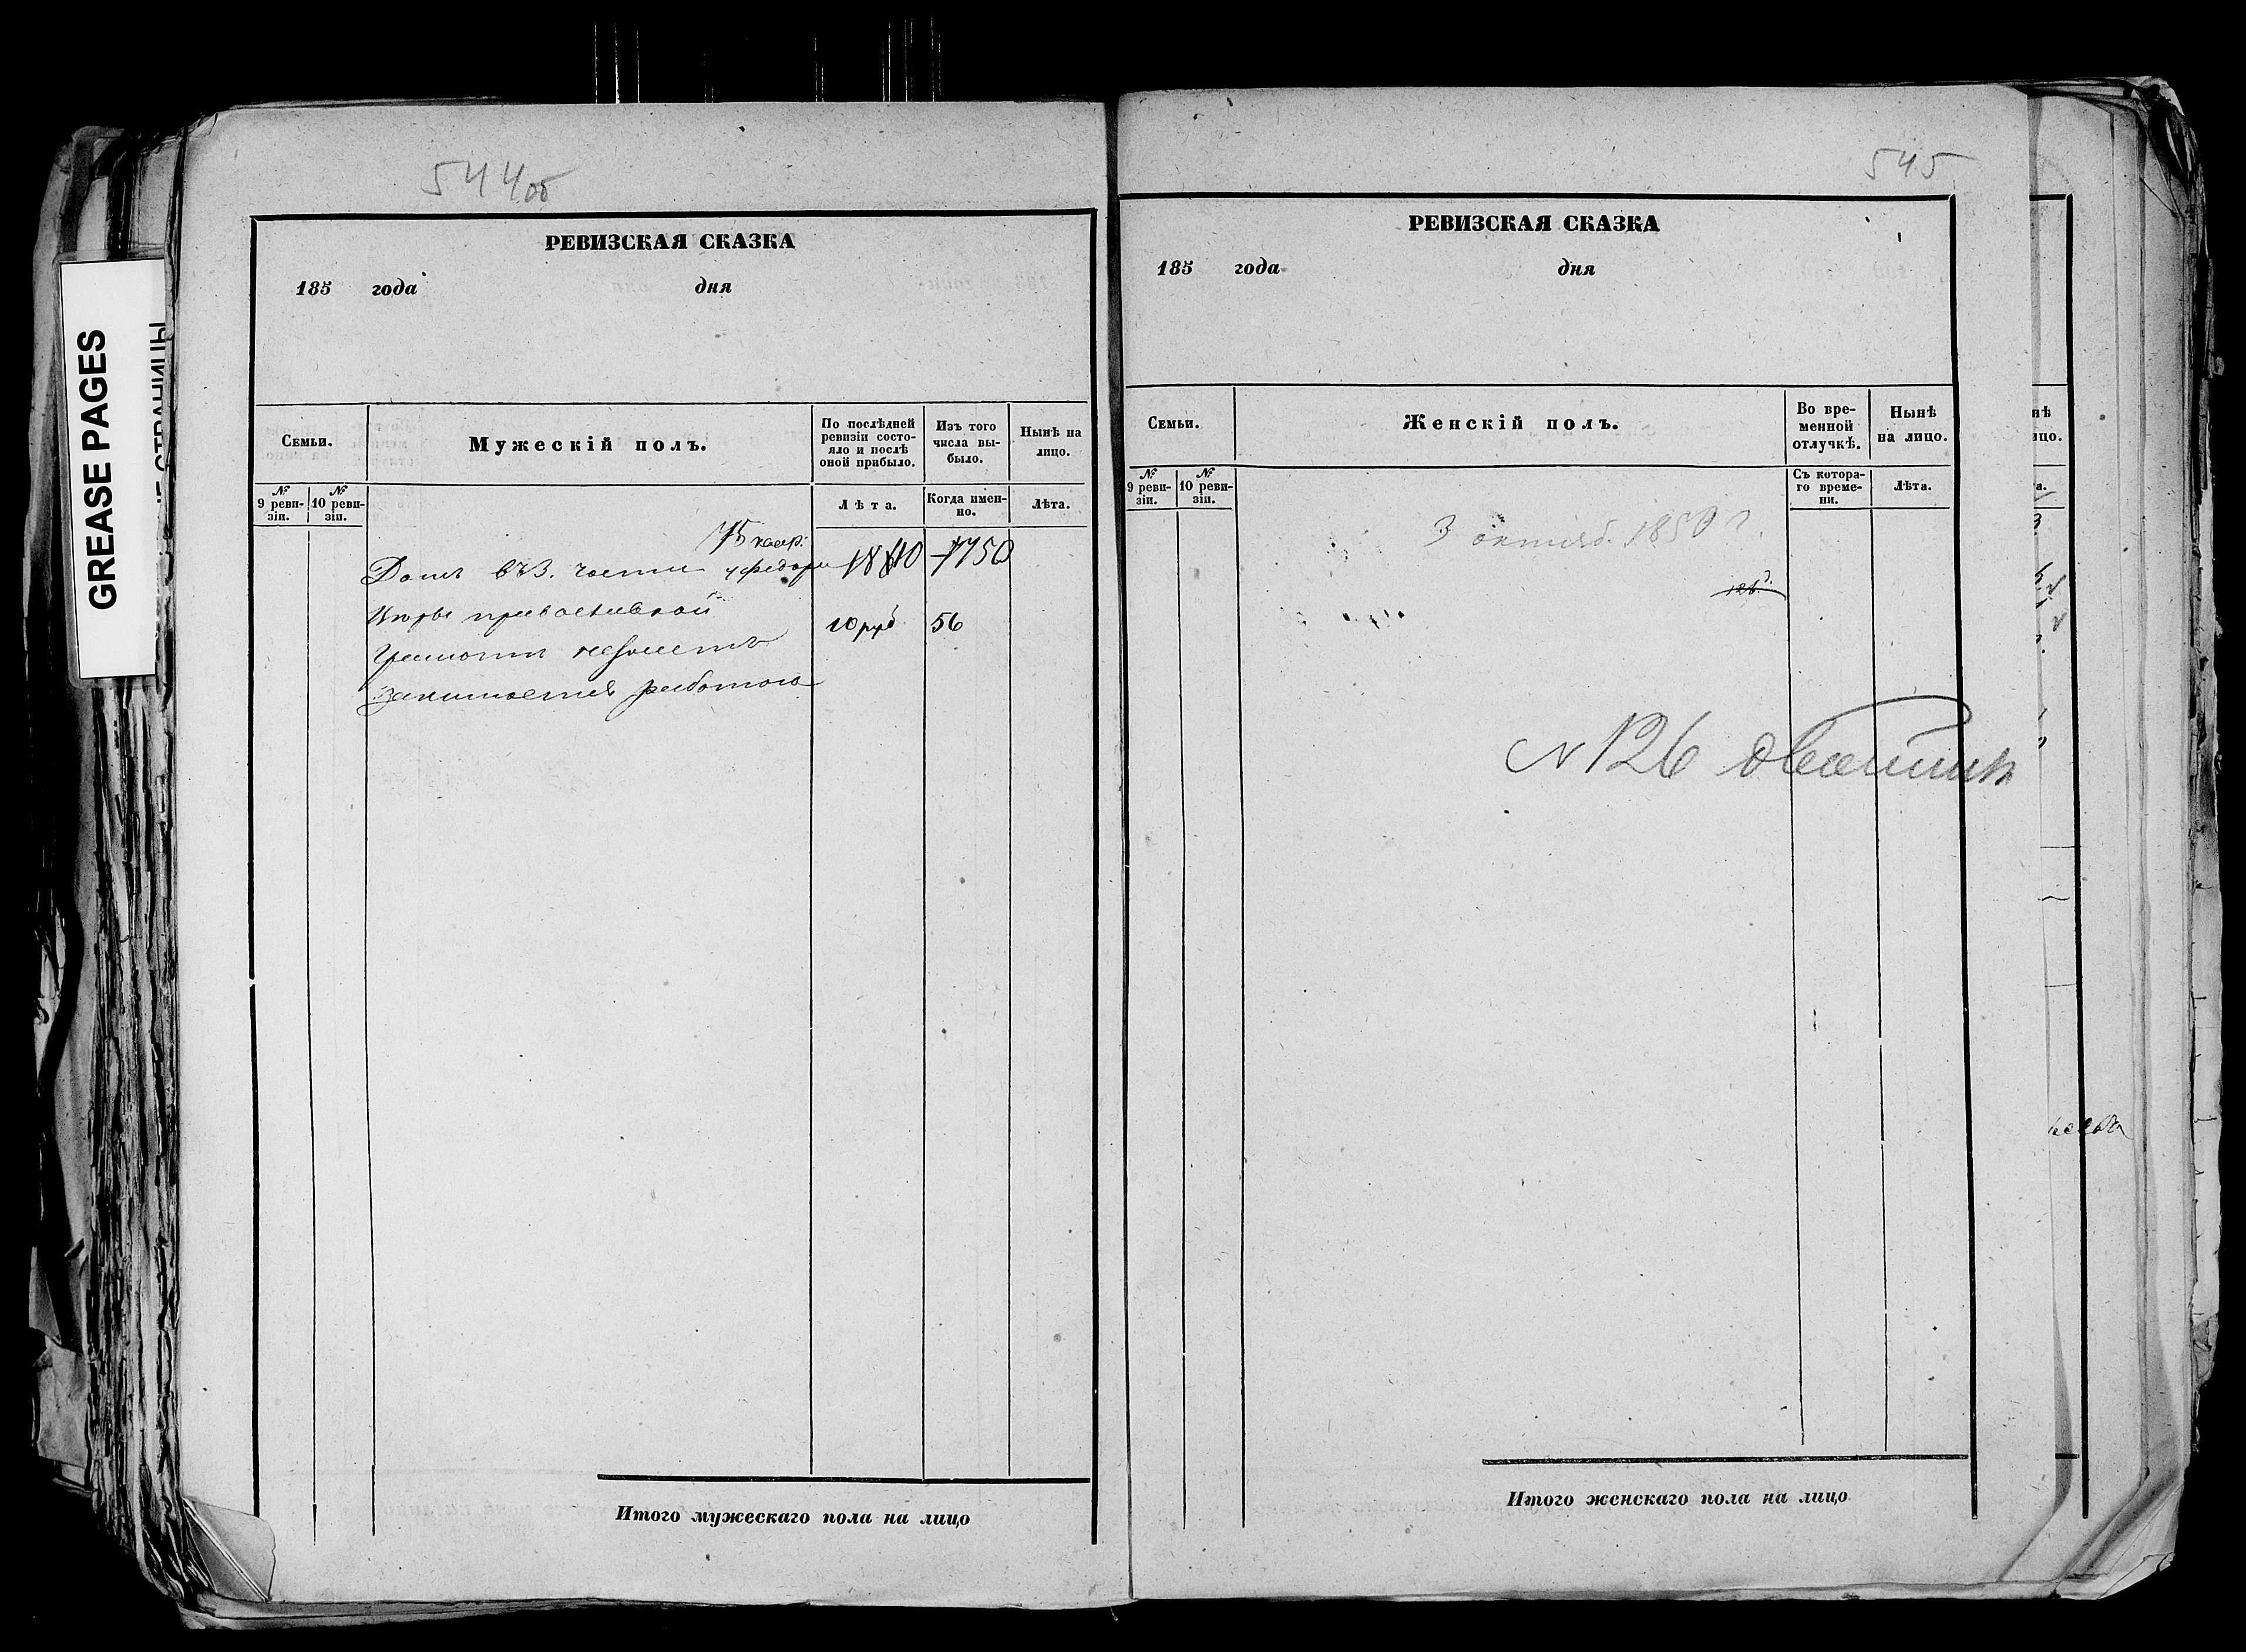 GREASE PAGES
544об
РЕВИЗСКАЯ СКАЗКА
185 года дня
Семьи.
Мужескій полъ.
По послѣдней ревизіи состояло и послѣ оной прибыло.
Изъ того числа выбыло.
Нынѣ на лицо.
№ 9 ревизіи.
№ 10 ревизіи.
Лѣта.
Когда именно.
Лѣта.
75 коер:
Домъ въ 3. части
10 руб 56
Грамоти незнаетъ
занимается работою
Итого мужескаго пола на лицо
545
РЕВИЗСКАЯ СКАЗКА
185 года дня
Семьи.
Женскій полъ.
Во временной отлучкѣ.
Нынѣ на лицо.
№ 9 ревизіи.
№ 10 ревизіи.
Съ котораго времени.
Лѣта.
3 октяб. 1850 г.
№ 126
Итого женскаго пола на лицо